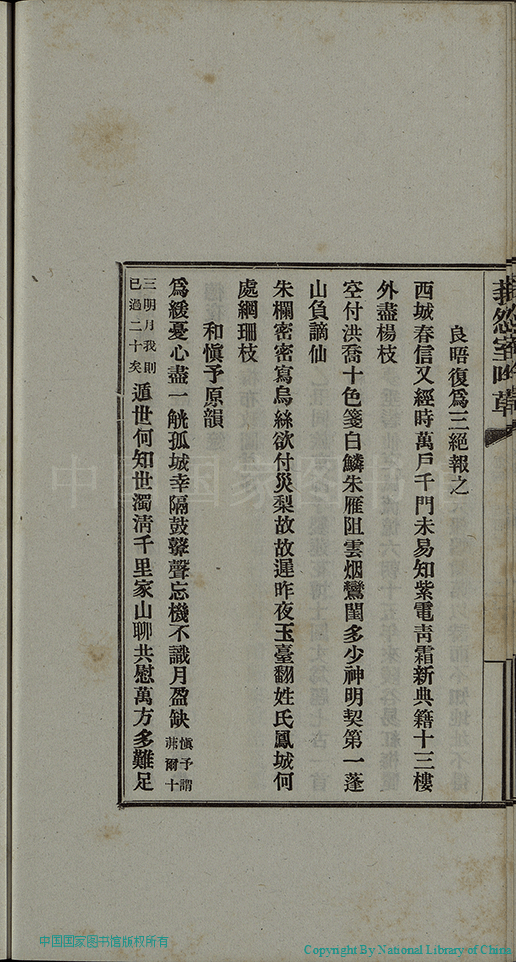 良晤復爲三絕報之
西城春信又經時萬戶千門未易知紫電靑霜新典籍十三樓
外盡楊枝
空付洪喬十色箋白鱗朱雁阻雲烟鸞閨多少神明契第一蓬
山負謫仙
朱欄密密寫烏絲欲付災梨故故遲昨夜玉臺翻姓氏鳳城何
處網珊枝
和愼予原韻
爲緩憂心盡一觥孤城幸隔鼓鼙聲忘機不識月盈缺愼予謂茀爾十
三明月我則已過二十矣遁世何知世濁淸千里家山聊共慰萬方多難足
中国国家图书馆
中国国家图书馆版权所有
Copyright By National Library of China